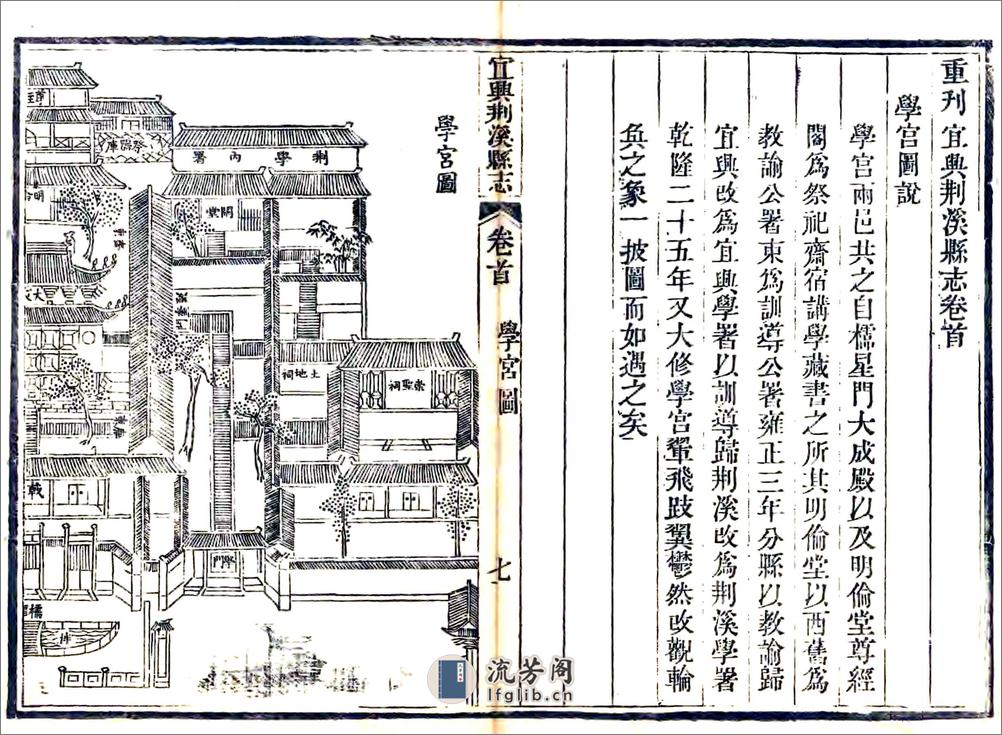 重刊宜興荆溪縣志卷首
學宮圖說
學宮兩邑共之自櫺星門大成殿以及明倫堂尊經
閣爲祭祀齋宿講學藏書之所其明倫堂以西舊爲
教諭公署東爲訓導公署雍正三年分縣以教諭歸
宜興改爲宜興學署以訓導歸荆溪改爲荆溪學署
乾隆二十五年又大修學宮翬飛跂翼鬱然改觀輪
奐之象一披圖而如遇之矣
宜興荆溪縣志
卷首
學宮圖
七
學宮圖
荆學內署
土地祠
崇聖祠
學門
流芳阁
lfglib.cn